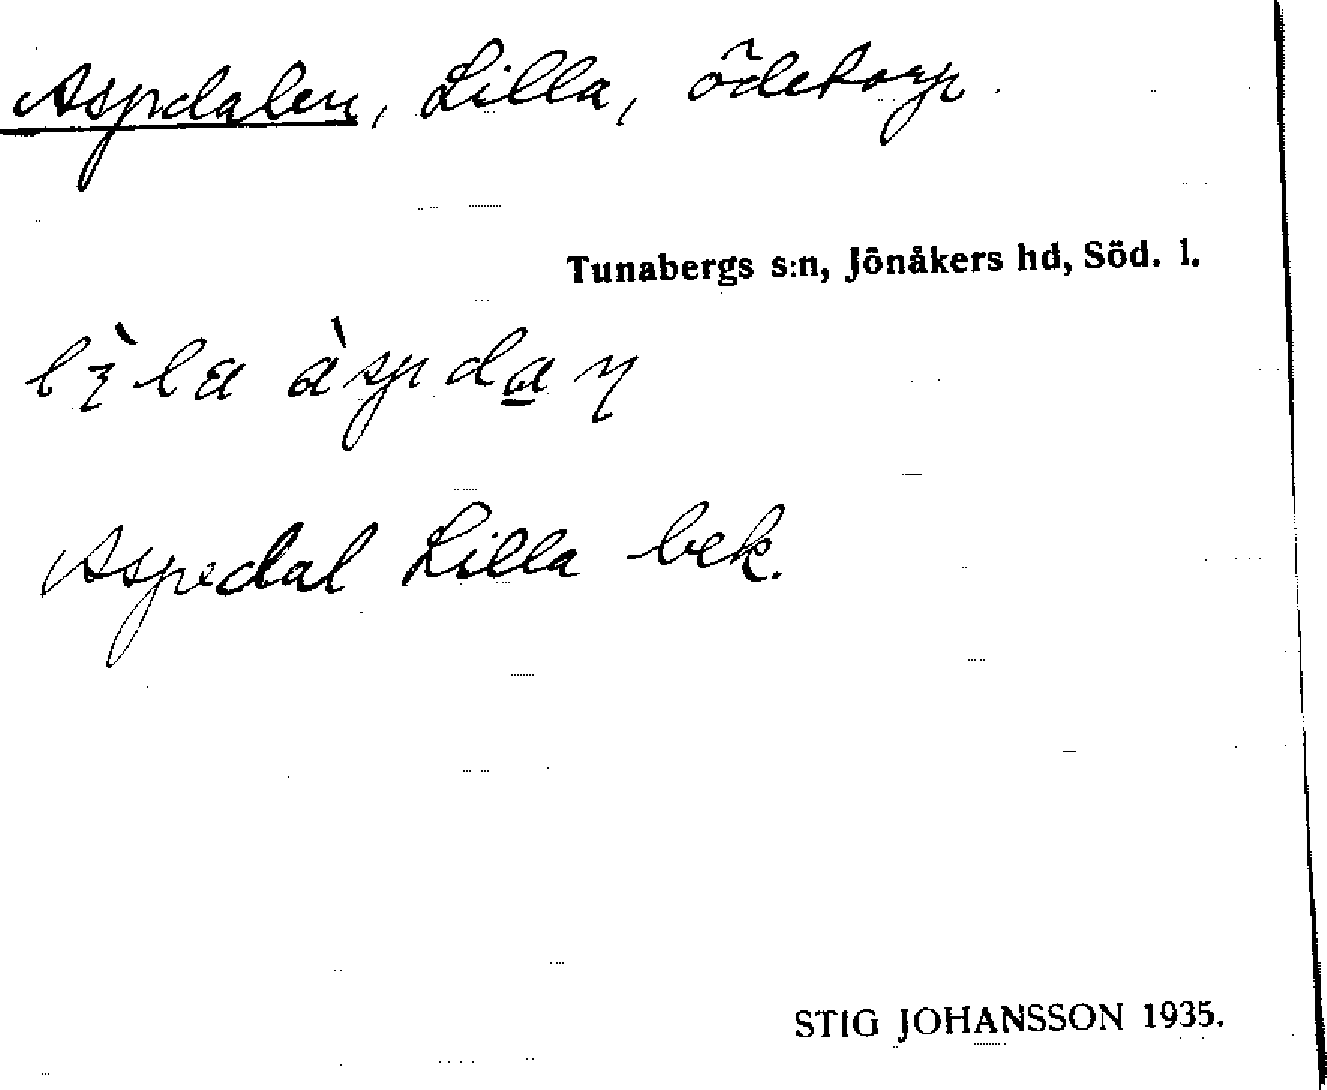 Aspdalen, Lilla, ödetorp.
Tunabergs s:n, Jönåkers hd, Söd. l.
lìla àspdaṇ
Aspedal Lilla bek.
STIG JOHANSSON 1935.